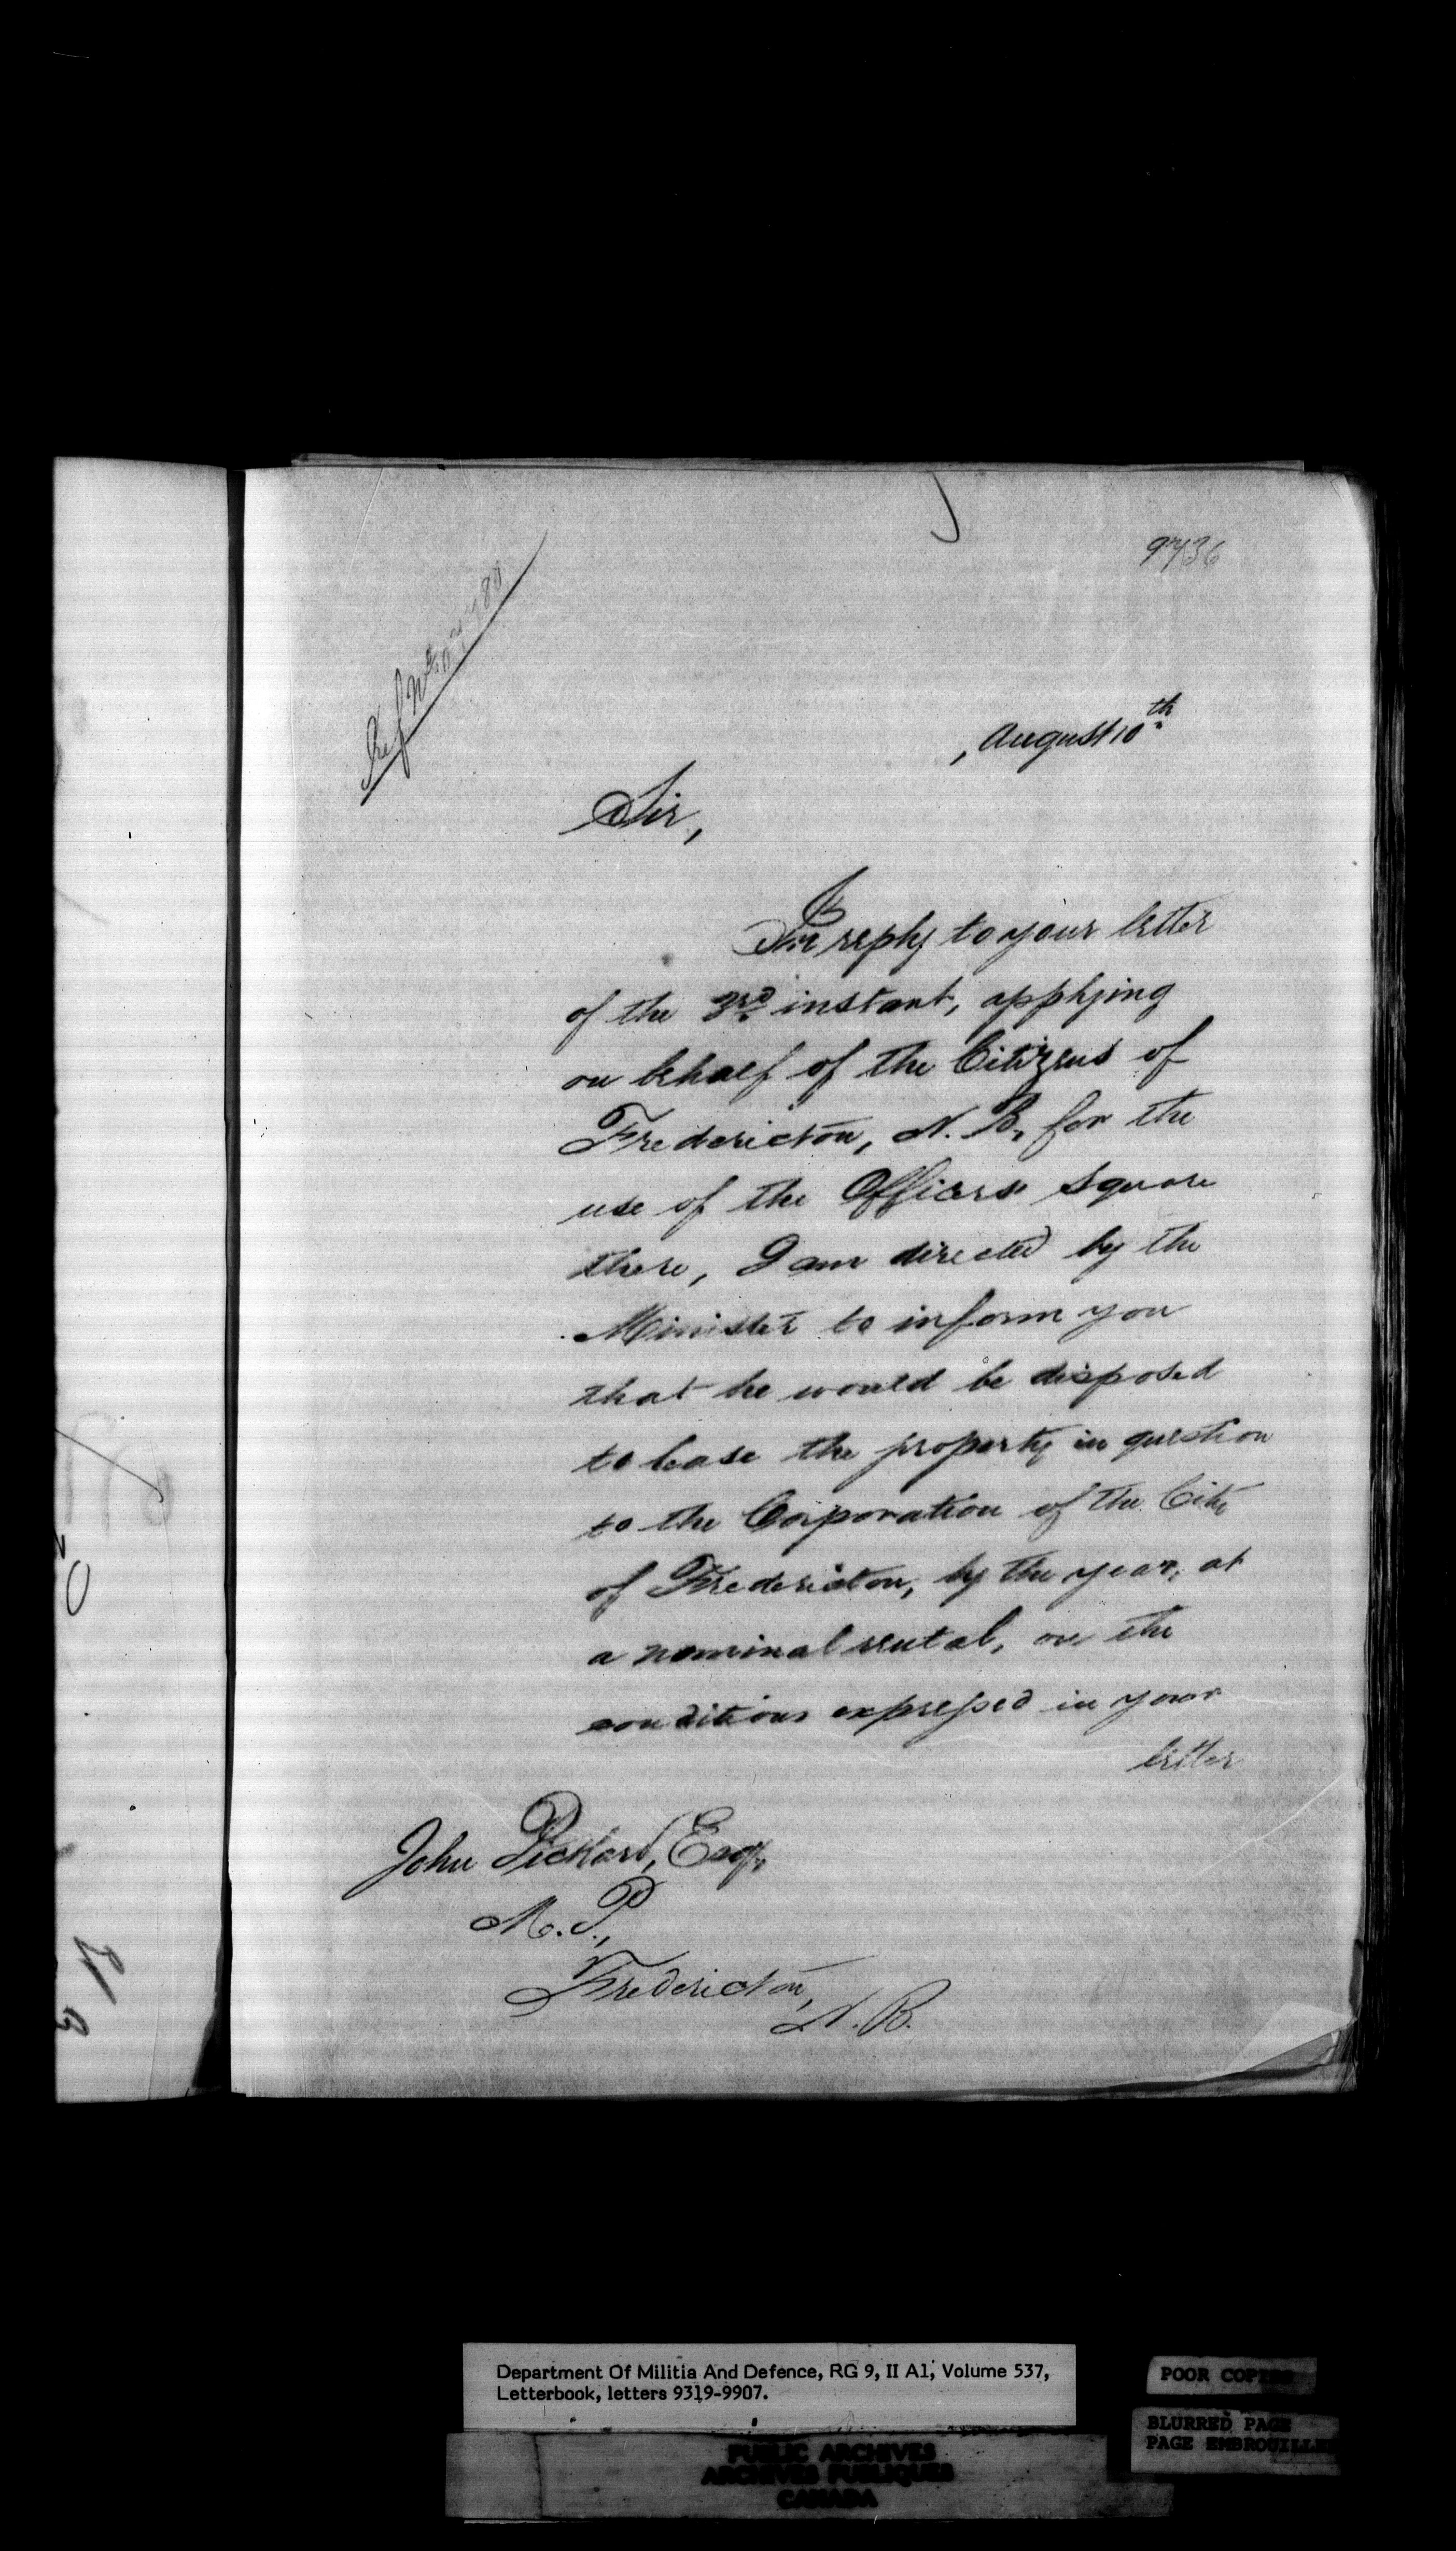 9736
August 10th
Sir,
In reply to your letter
of the 3rd instant, applying
on behalf of the Citizens of
Fredericton, N. B., for the
use of the Officers Square
there, I am directed by the
Minister to inform you
that he would be disposed
to lease the property in question
to the Corporation of the City
of Fredericton, by the year, at
a nominal rental, on the
conditions expressed in your
letter
John Pickard, Esq.,
M. P.,
Fredericton,
N. B.
Department Of Militia And Defence, RG 9, II A1, Volume 537,
Letterbook, letters 9319-9907.
POOR COPIES
BLURRED PAGE
PAGE EMBROUILLEE
PUBLIC ARCHIVES
ARCHIVES PUBLIQUES
CANADA